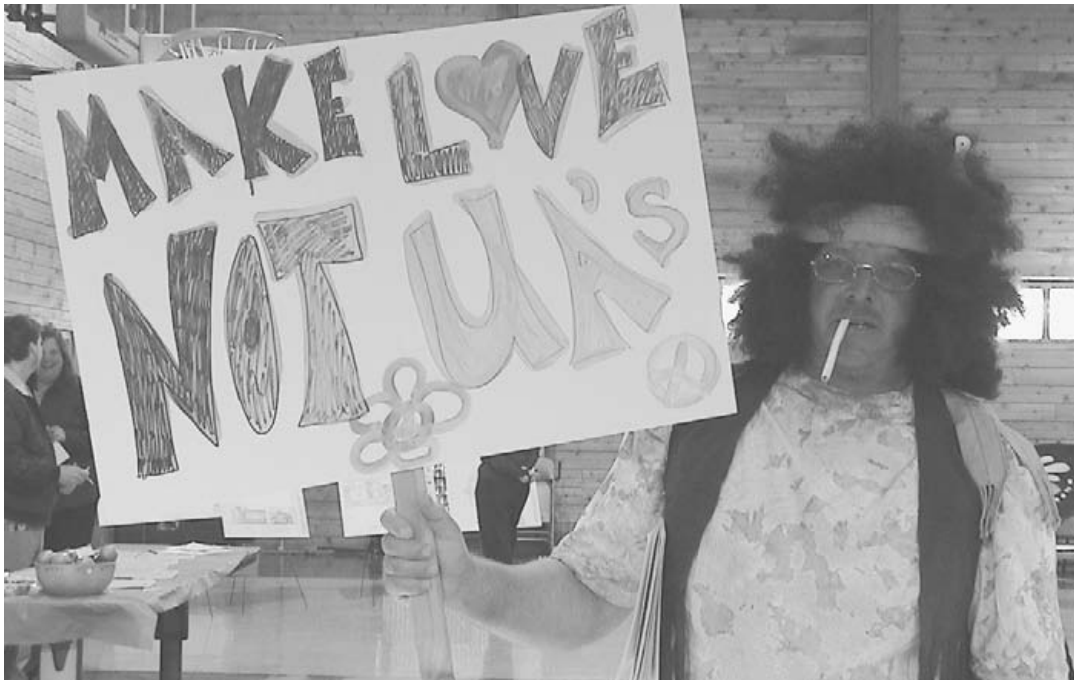 MAKE LOVE
NOT UA'S